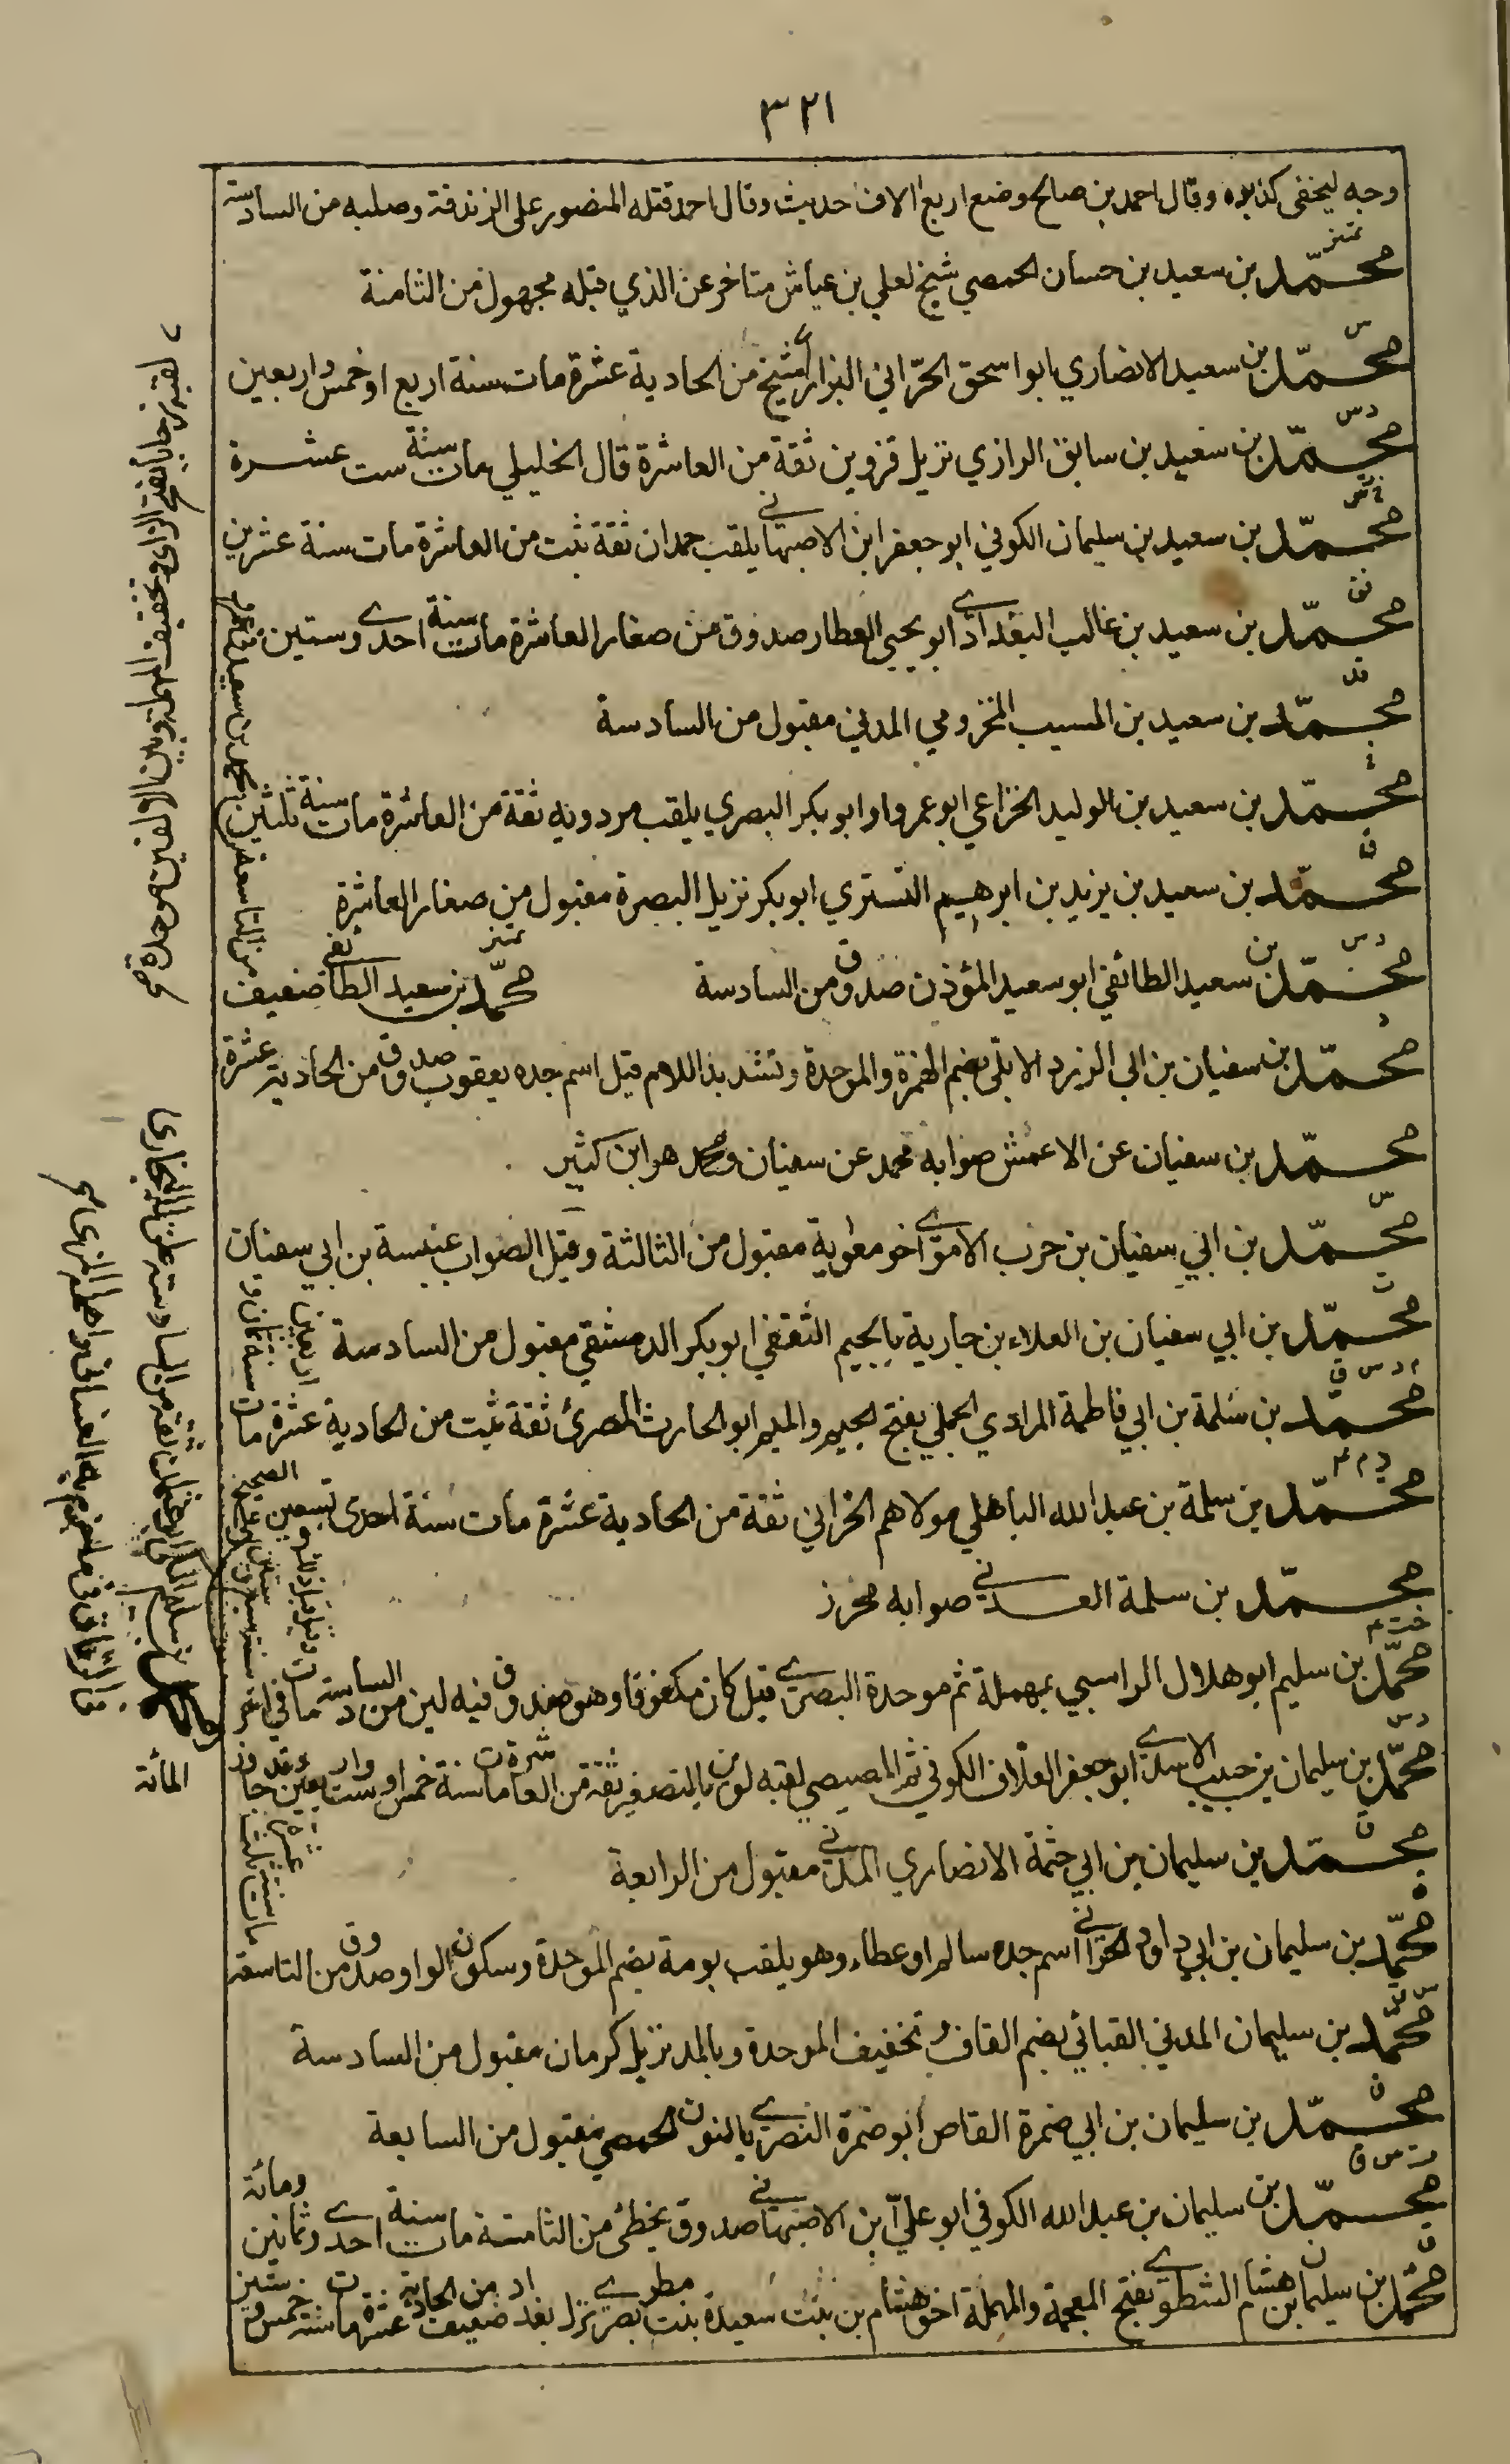 ٣٢١
وجه ليخفى كذابوه وقال احمد بن صالح وضع اربع الاف حديث وقال احمد قتله المنصور على الزندقة وصلبه من السادسة
تمييز
محمّد بن سعيد بن حسان الحمصي شيخ لعلي بن عياش متاخر عن الذي قبله مجهول من الثامنة
س
محمّد بن سعيد الانصاري ابو اسحق الحرّاني البزار شيخ من الحادية عشرة مات سنة اربع او خمس واربعين
د س
محمّد بن سعيد بن سابق الرازي نزيل قزوين ثقة من العاشرة قال الخليلي مات سنة ست عشرة
خ ت س
محمّد بن سعيد بن سليمان الكوفي ابو جعفر ابن الاصبهاني يلقب حمدان ثقة ثبت من العاشرة مات سنة عشرين
فق
محمّد بن سعيد بن غالب البغدادي ابو يحيى العطار صدوق من صغار العاشرة مات سنة احدى وستين
قد
محمّد بن سعيد بن المسيب المخزومي المدني مقبول من السادسة
محمّد بن سعيد بن الوليد الخزاعي ابو عمرو او ابو بكر البصري يلقب مردويه ثقة من العاشرة مات سنة ثلثين
ق
محمّد بن سعيد بن يزيد بن ابرهيم التستري ابو بكر نزيل البصرة مقبول من صغار العاشرة
د س
محمّد بن سعيد الطائفي ابو سعيد المؤذن صدوق من السادسة تمييز محمّد بن سعيد الطائفي ضعيف
من التاسعة
د
محمّد بن سفيان بن ابي الزرد الابلي بضم الهمزة والموحدة وتشديد اللام قيل اسم جده يعقوب صدوق من الحادية عشرة
محمّد بن سفيان عن الاعمش صوابه محمد عن سفيان ومحمد هو ابن كثير
س
محمّد بن ابي سفيان بن حرب الاموي اخو معوية مقبول من الثالثة وقيل الصواب عنبسة بن ابي سفيان
ت
محمّد بن ابي سفيان بن العلاء بن جارية بالجيم الثقفي ابو بكر الدمشقي مقبول من السادسة
م د س ق
محمّد بن سلمة بن ابي فاطمة المرادي الجملي بفتح الجيم والميم ابو الحارث المصري ثقة ثبت من الحادية عشرة مات
سنة ثمان و
اربعين
ر م ٤
محمّد بن سلمة بن عبد الله الباهلي مولاهم الحرّاني ثقة من الحادية عشرة مات سنة احدى وتسعين
على الصحيح
محمّد بن سلمة العدني صوابه محرز
خت ٤
محمّد بن سليم ابو هلال الراسبي بمهملة ثم موحدة البصري قيل كان مكفوفا وهو صدوق فيه لين من السادسة مات في اخر
سنة سبع وستين
وقيل قبل ذلك
د س
محمّد بن سليمان بن حبيب الاسدي ابو جعفر العلاف الكوفي ثم المصيصي لقبه لوين بالتصغير ثقة من العاشرة مات سنة خمس او ست واربعين وقد جاوز
المائة
ق
محمّد بن سليمان بن ابي حثمة الانصاري المدني مقبول من الرابعة
محمّد بن سليمان بن ابي داود الحراني اسم جده سالم او عطاء وهو يلقب بومة بضم الموحدة وسكون الواو صدوق من التاسعة
مات سنة ثلث
عشرة
محمّد بن سليمان المدني القبائي بضم القاف وتخفيف الموحدة وبالمد نزيل كرمان مقبول من السادسة
ق
محمّد بن سليمان بن ابي ضمرة القاص ابو ضمرة النصري بالنون الحمصي مقبول من السابعة
ت س ق
محمّد بن سليمان بن عبد الله الكوفي ابو علي بن الاصبهاني صدوق يخطئ من الثامنة مات سنة احدى وثمانين
ومائة
ق
محمّد بن سليمان بن هشام الشطوي بفتح المعجمة والمهملة اخو هشام بن بنت سعيدة بنت مطر بصري نزل بغداد ضعيف من الحادية عشرة مات سنة خمس وستين
بفتح الزاى وتخفيف المهملة وبين الالفين موحدة